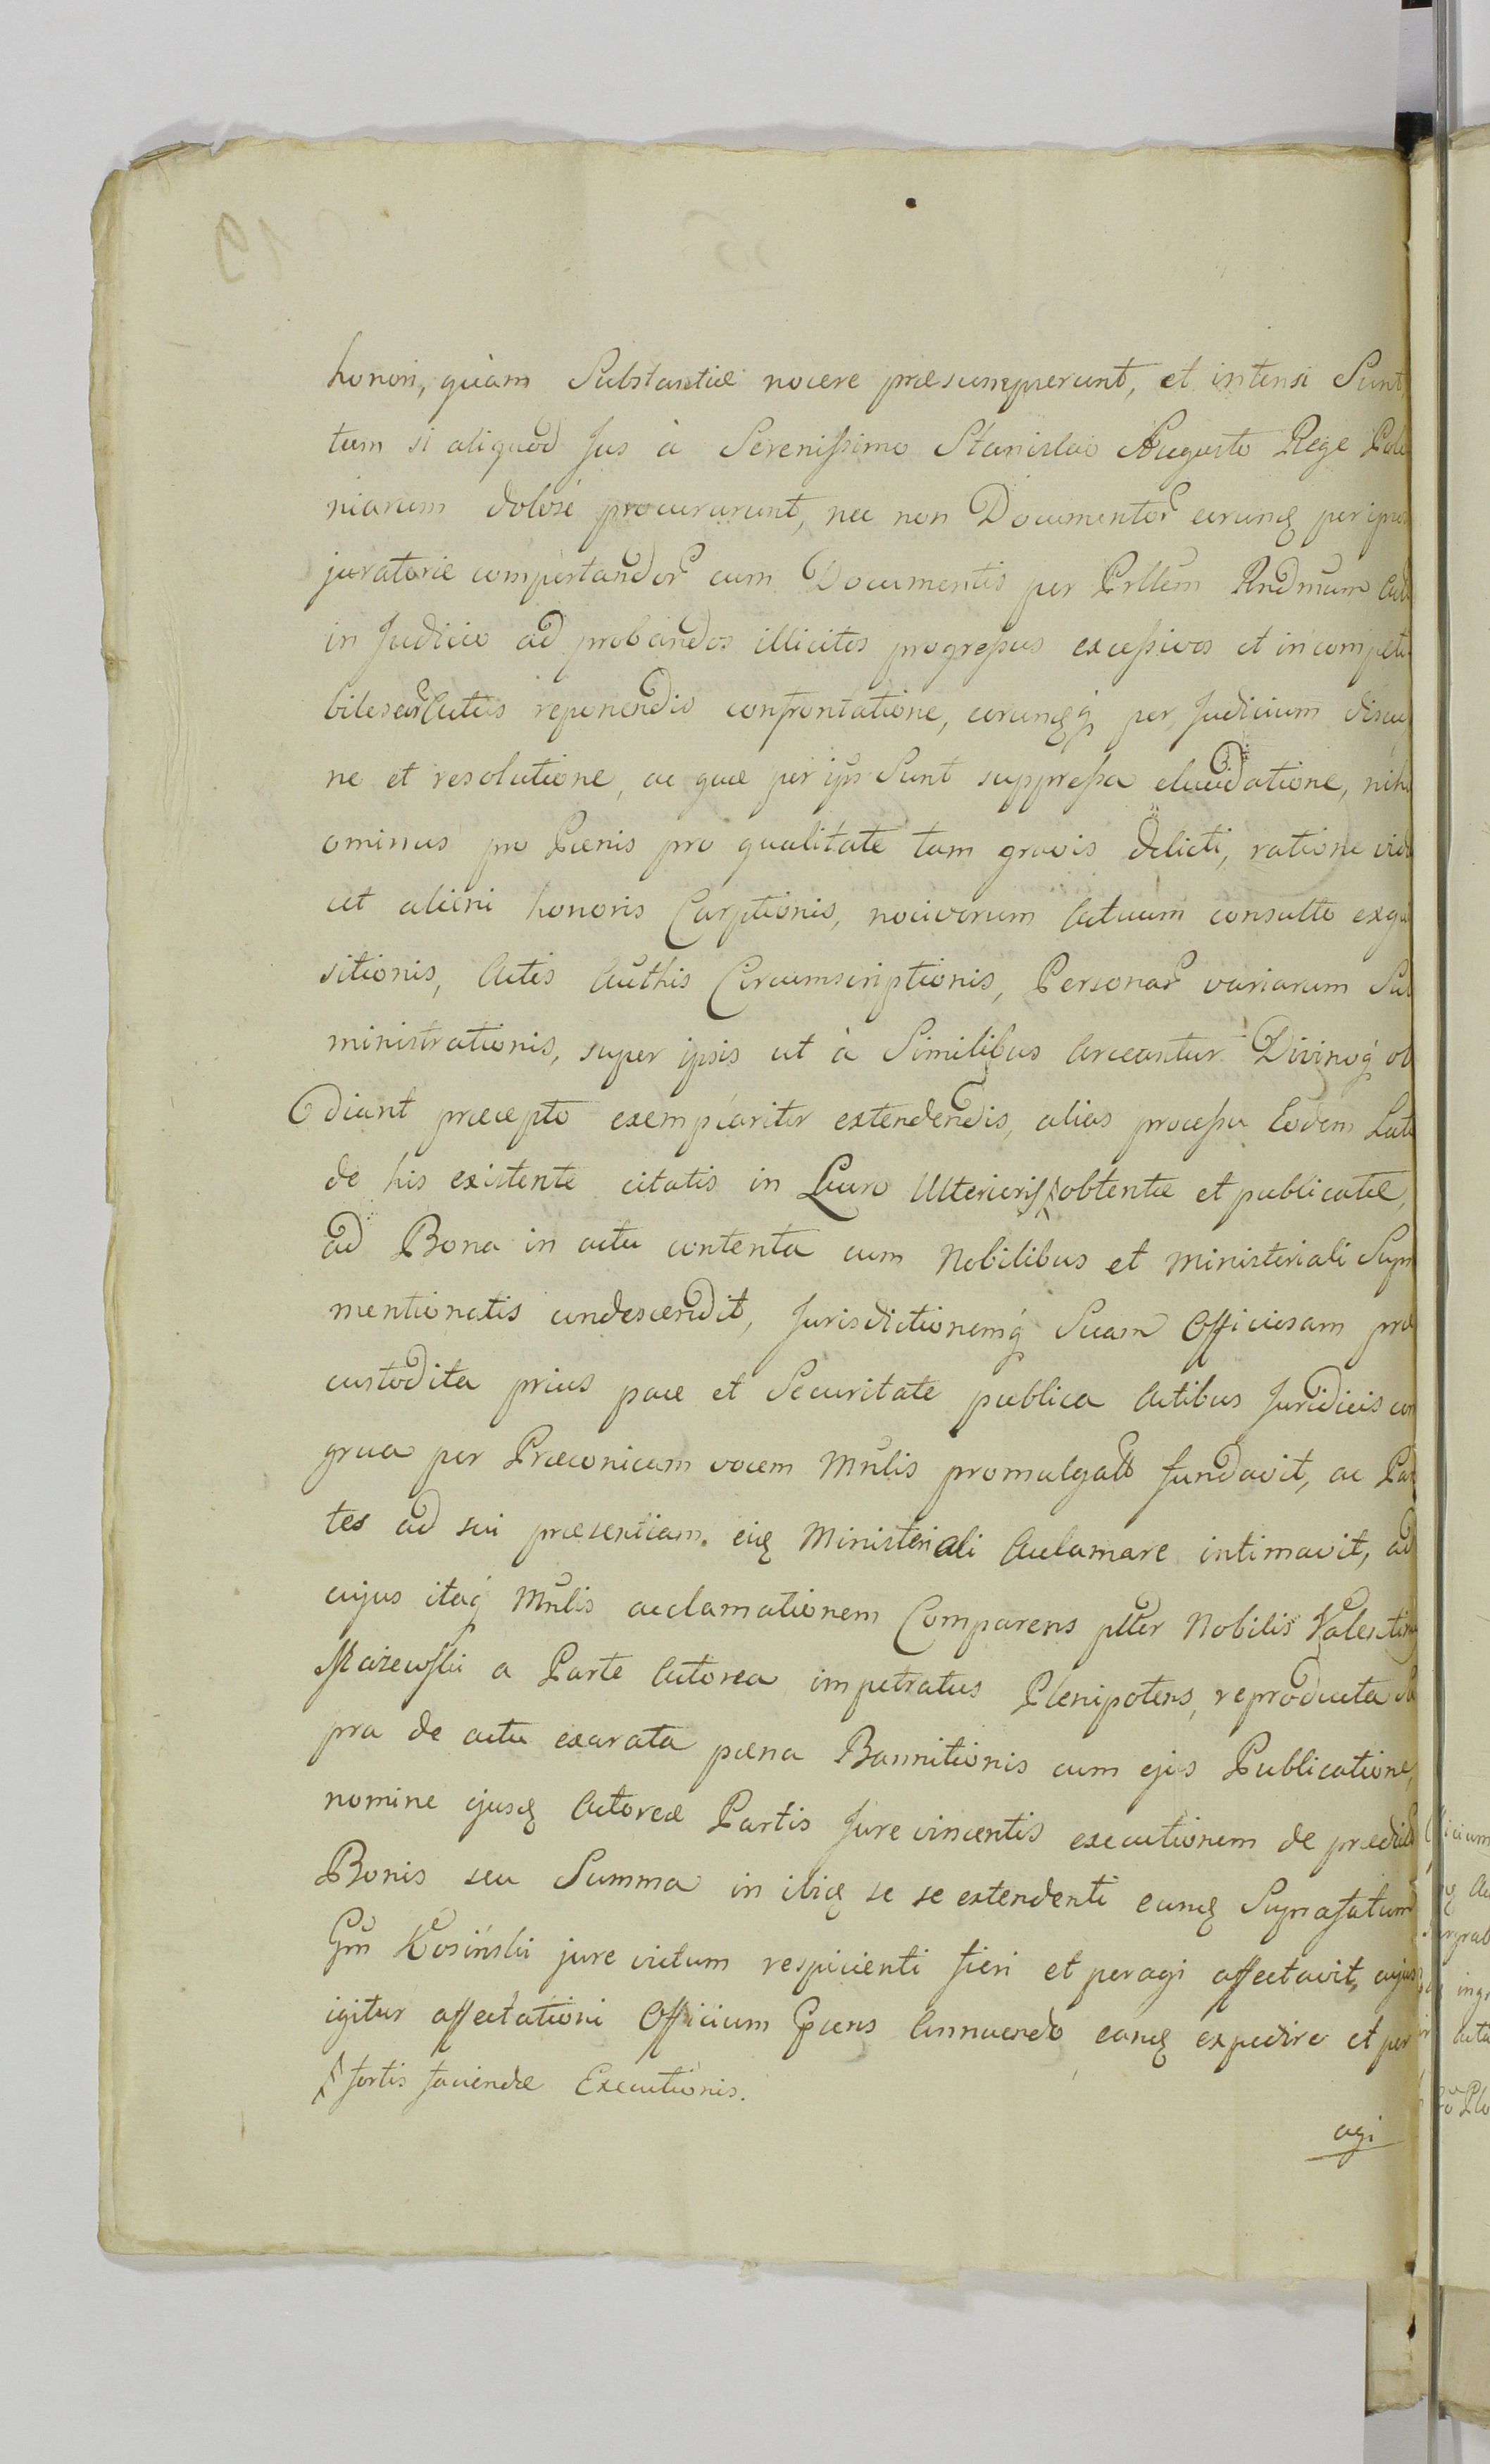 honori, quàm Substantiæ nocere præsumpserunt, et intensi Sunt
tum si aliquod Jus à Serenissimo Stanislao Augusto Rege Polo
niarum dolosè procurarunt, nec non Documentor eorund per ipsos
juratorie comportandor cum Documentis per Prllem Rndmum Act
in Judicio ad probandos illicitos progressus excessivos et incompeti
biles eor Actus reponendis confrontatione, eorundq per Judicium discu
ne et resolutione, ac quæ per ipsos Sunt suppressa elucidatione, nihi
ominus pro Pœnis pro qualitate tam gravis delicti, ratione vide
cet alieni honoris Carptionis, nocivorum Actuum consulto exqui
sitionis, Actis Authis Circumscriptionis, Personar variarum Sub
ministrationis, super ipsis ut à Similibus Arceantur Divinoq ob
diant præcepto exemplariter extendendis, alias processu Eodem Lati
de his existente citatis in Lucro Ulterioris obtentæ et publicatæ,
ad Bona in actu contenta cum Nobilibus et Ministeriali Supra
mentionatis condescendit, Jurisdictionemq Suam Officiosam præ
custodita prius pace et Securitate publica Actibus Juridicis con
grua per Præconicam vocem Mnlis promulgatt fundavit, ac Par
tes ad sui præsentiam eid Ministeriali Acclamare intimavit, ad
cujus itaq Mnlis acclamationem Comparens plter Nobilis Valentin
Mażewski a Parte Actorea impetratus Plenipotens, reproducta Su
pra de actu exarata pœna Bannitionis cum ejus Publicatione,
nomine ejusd Actoreæ Partis Jure vincentis executionem de prædict
Bonis seu Summa in ibid se se extendenti eund Suprafatum
Gm Kosiński jure victum respicienti fieri et peragi affectavit, cujus
igitur affectationi Officium Præns Annuendo eand expedire et per
fortis faciendæ Executionis.
agi